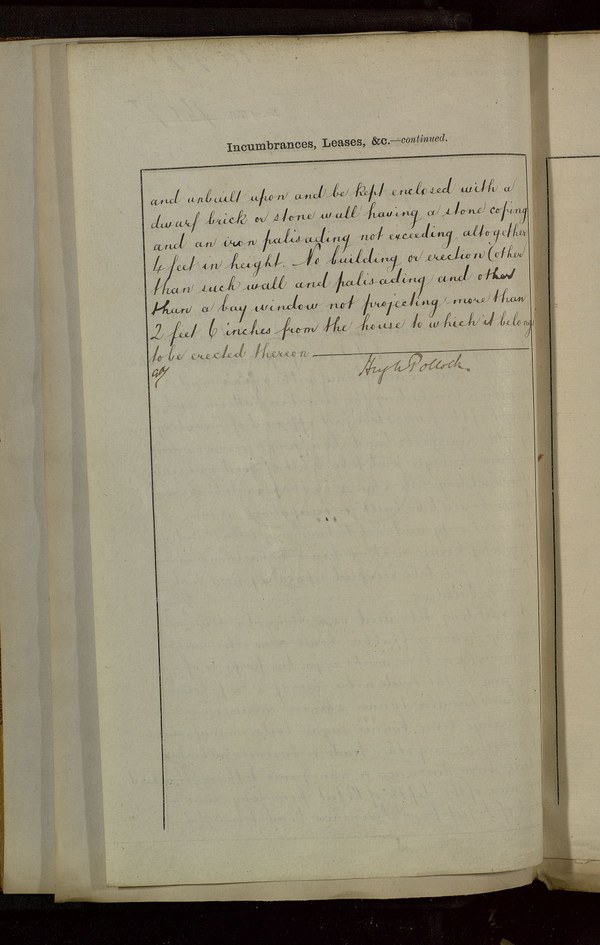 Incumbrances, Leases, &c.—continued.
and unbuilt upon and be kept enclosed with a
dwarf brick or stone wall having a stone coping
and an iron palisading not exceeding altogether
4 feet in height. No building or erection (other
than such wall and palisading and other
than a bay window not projecting more than
2 feet 6 inches from the house to which it belong
to be erected thereon
Hugh Pollock.